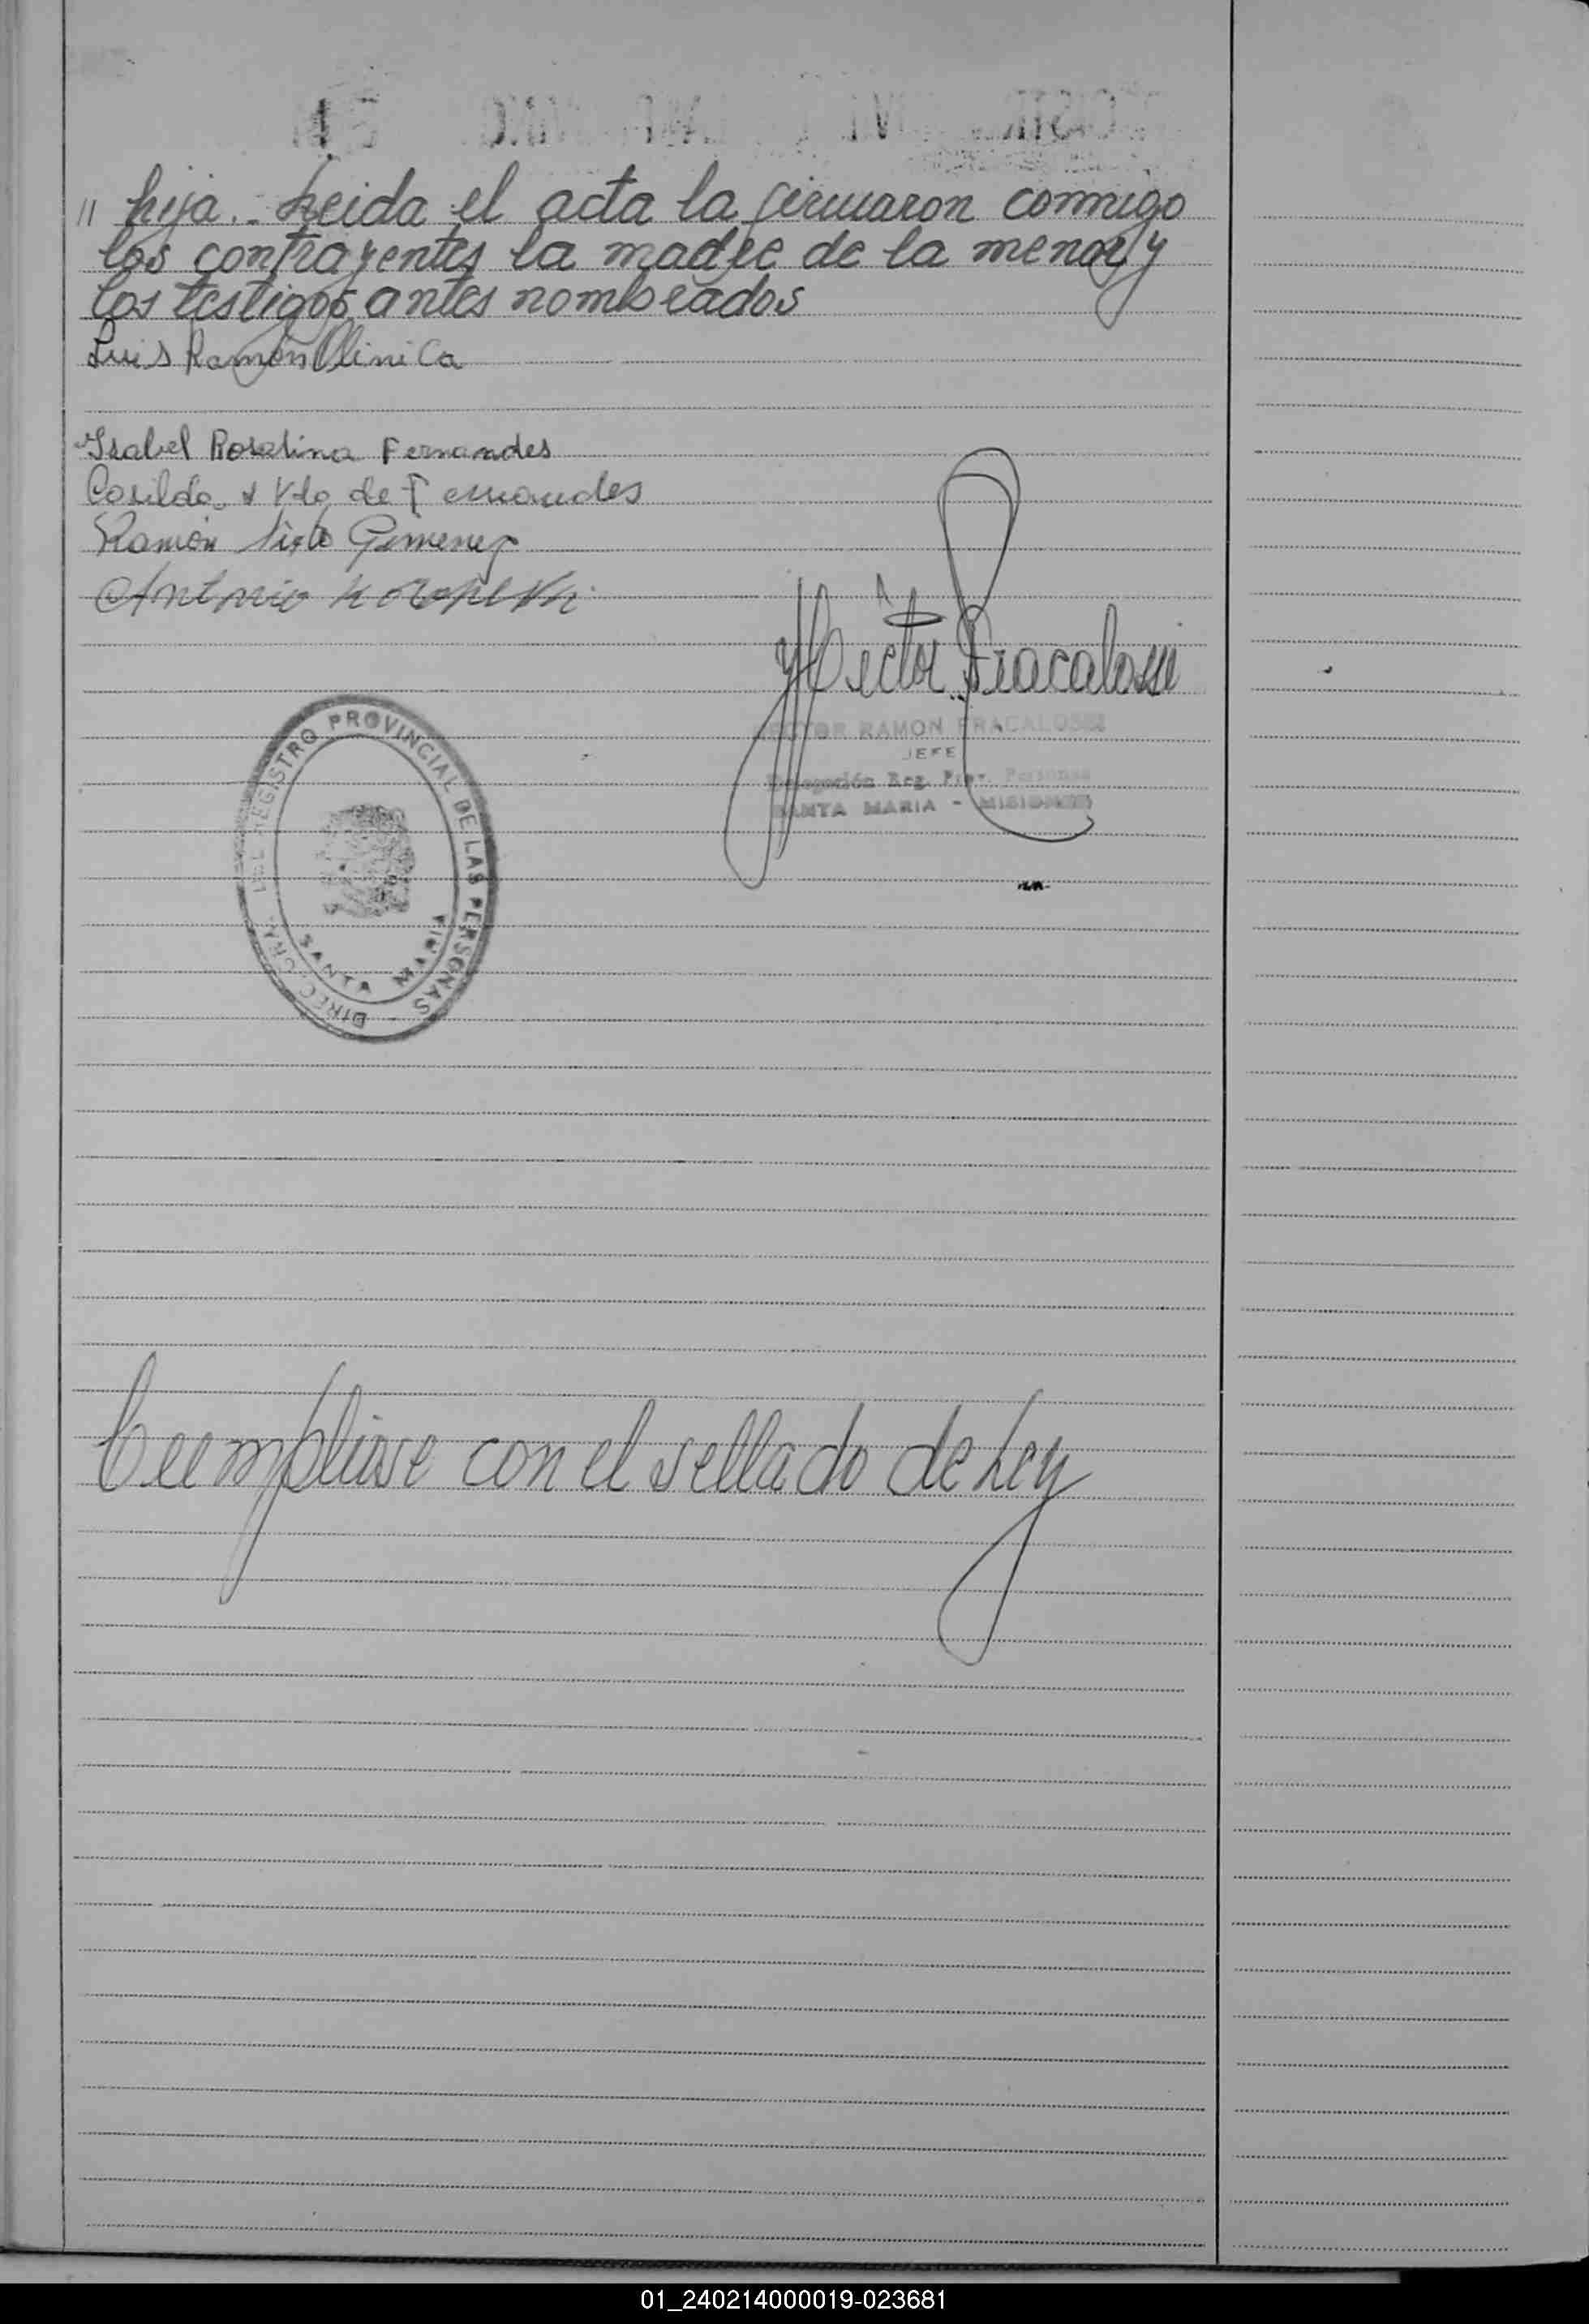 " hija.- Leida el acta la firmaron conmigo
los contrayentes la madre de la menor y
los testigos antes nombrados
Luis Ramón Olinica
Isabel Rosalina Fernandes
Casilda Vda de Fernandes
Ramón Sixto Gimenez
Antonio
Hector Fracalossi
HECTOR RAMON FRACALOSSI
JEFE
Delegación Reg. Prov. Personas
SANTA MARIA - MISIONES
DIRECTORA DEL REGISTRO PROVINCIAL DE LAS PERSONAS -
SANTA MARIA
Cumpliose con el sellado de Ley
01_240214000019-023681